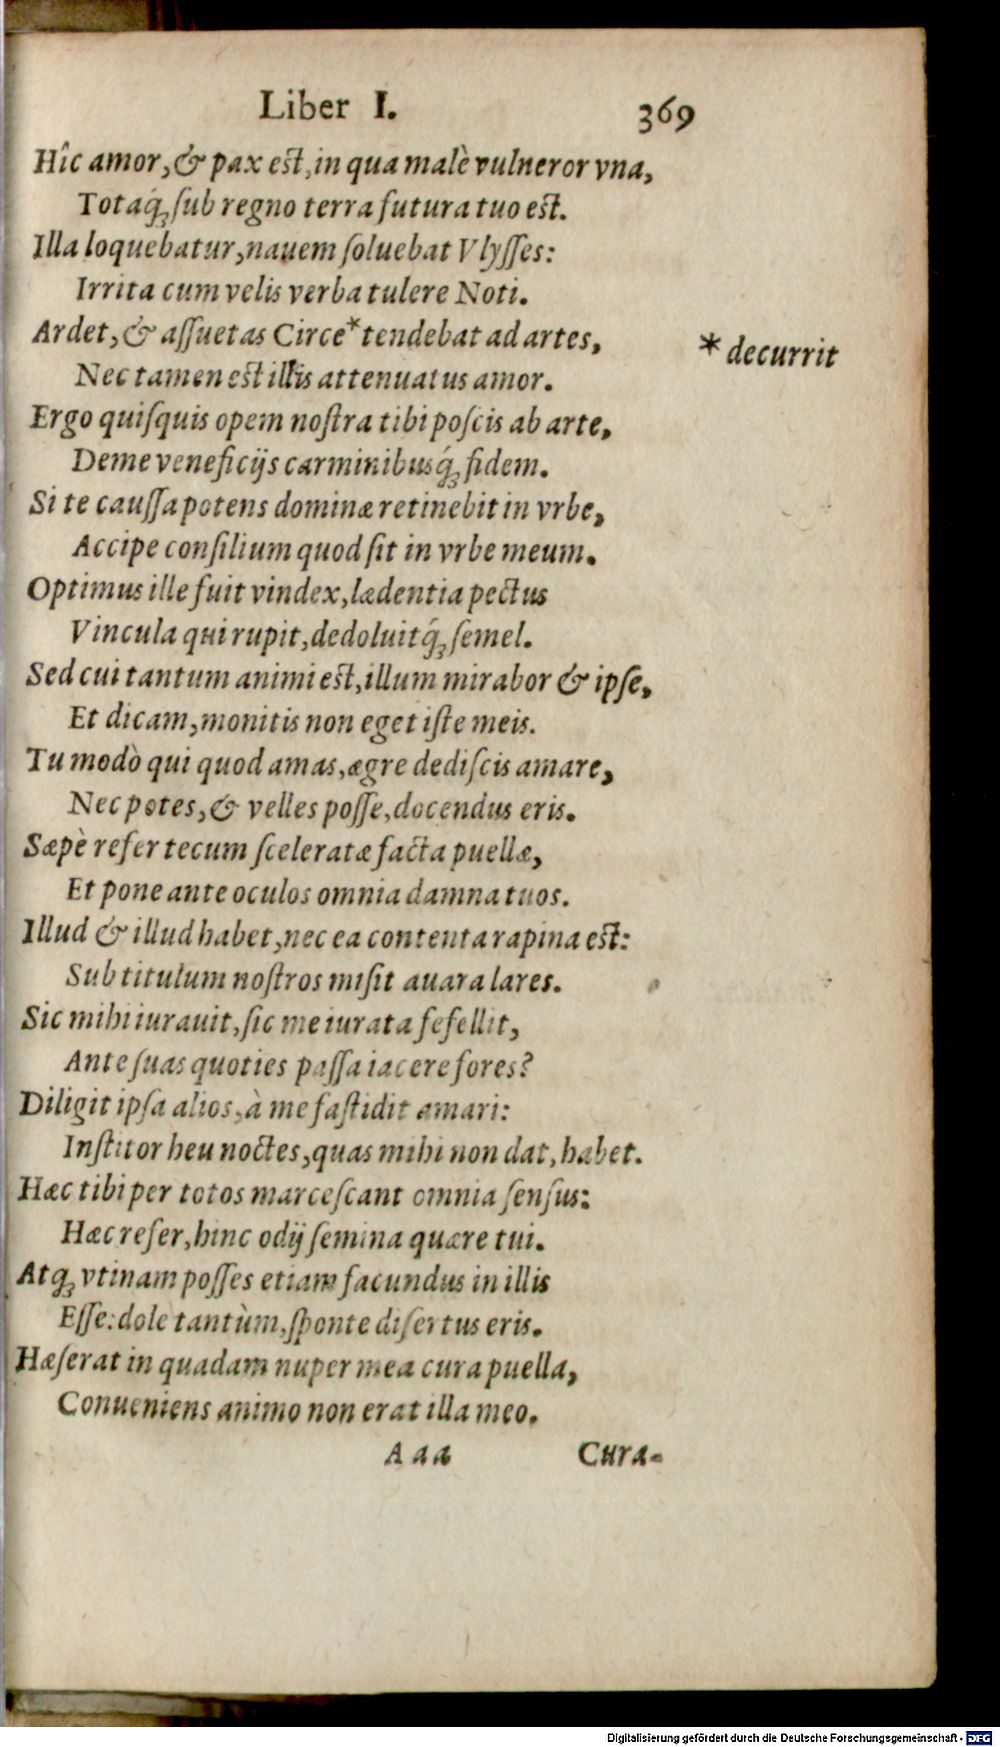 Liber I. 369
Hîc amor, & pax est, in qua malè vulneror vna,
Totaq́; ſub regno terra futura tuo est.
Illa loquebatur, nauem ſoluebat Vlyſſes:
Irrita cum velis verba tulere Noti.
Ardet, & aſſuetas Circe* tendebat ad artes,
* decurrit
Nec tamen est illis attenuatus amor.
Ergo quiſquis opem noſtra tibi poſcis ab arte,
Deme veneficijs carminibusq́; fidem.
Si te cauſſa potens dominæ retinebit in vrbe,
Accipe conſilium quod ſit in vrbe meum.
Optimus ille fuit vindex, lædentia pectus
Vincula qui rupit, dedoluitq́; ſemel.
Sed cui tantum animi est, illum mirabor & ipſe,
Et dicam, monitis non eget iſte meis.
Tu modò qui quod amas, ægre dediſcis amare,
Nec potes, & velles poſſe, docendus eris.
Sæpè refer tecum ſceleratæ facta puellæ,
Et pone ante oculos omnia damna tuos.
Illud & illud habet, nec ea contenta rapina est:
Sub titulum noſtros miſit auara lares.
Sic mihi iurauit, ſic me iurata fefellit,
Ante ſuas quoties paſſa iacere fores?
Diligit ipſa alios, à me faſtidit amari:
Inſtitor heu noctes, quas mihi non dat, habet.
Hæc tibi per totos marceſcant omnia ſenſus:
Hæc refer, hinc odij ſemina quære tui.
Atq; vtinam poſſes etiam facundus in illis
Eſſe: dole tantùm, ſponte diſertus eris.
Hæſerat in quadam nuper mea cura puella,
Conueniens animo non erat illa meo.
Aaa Cura-
Digitalisierung gefördert durch die Deutsche Forschungsgemeinschaft - DFG